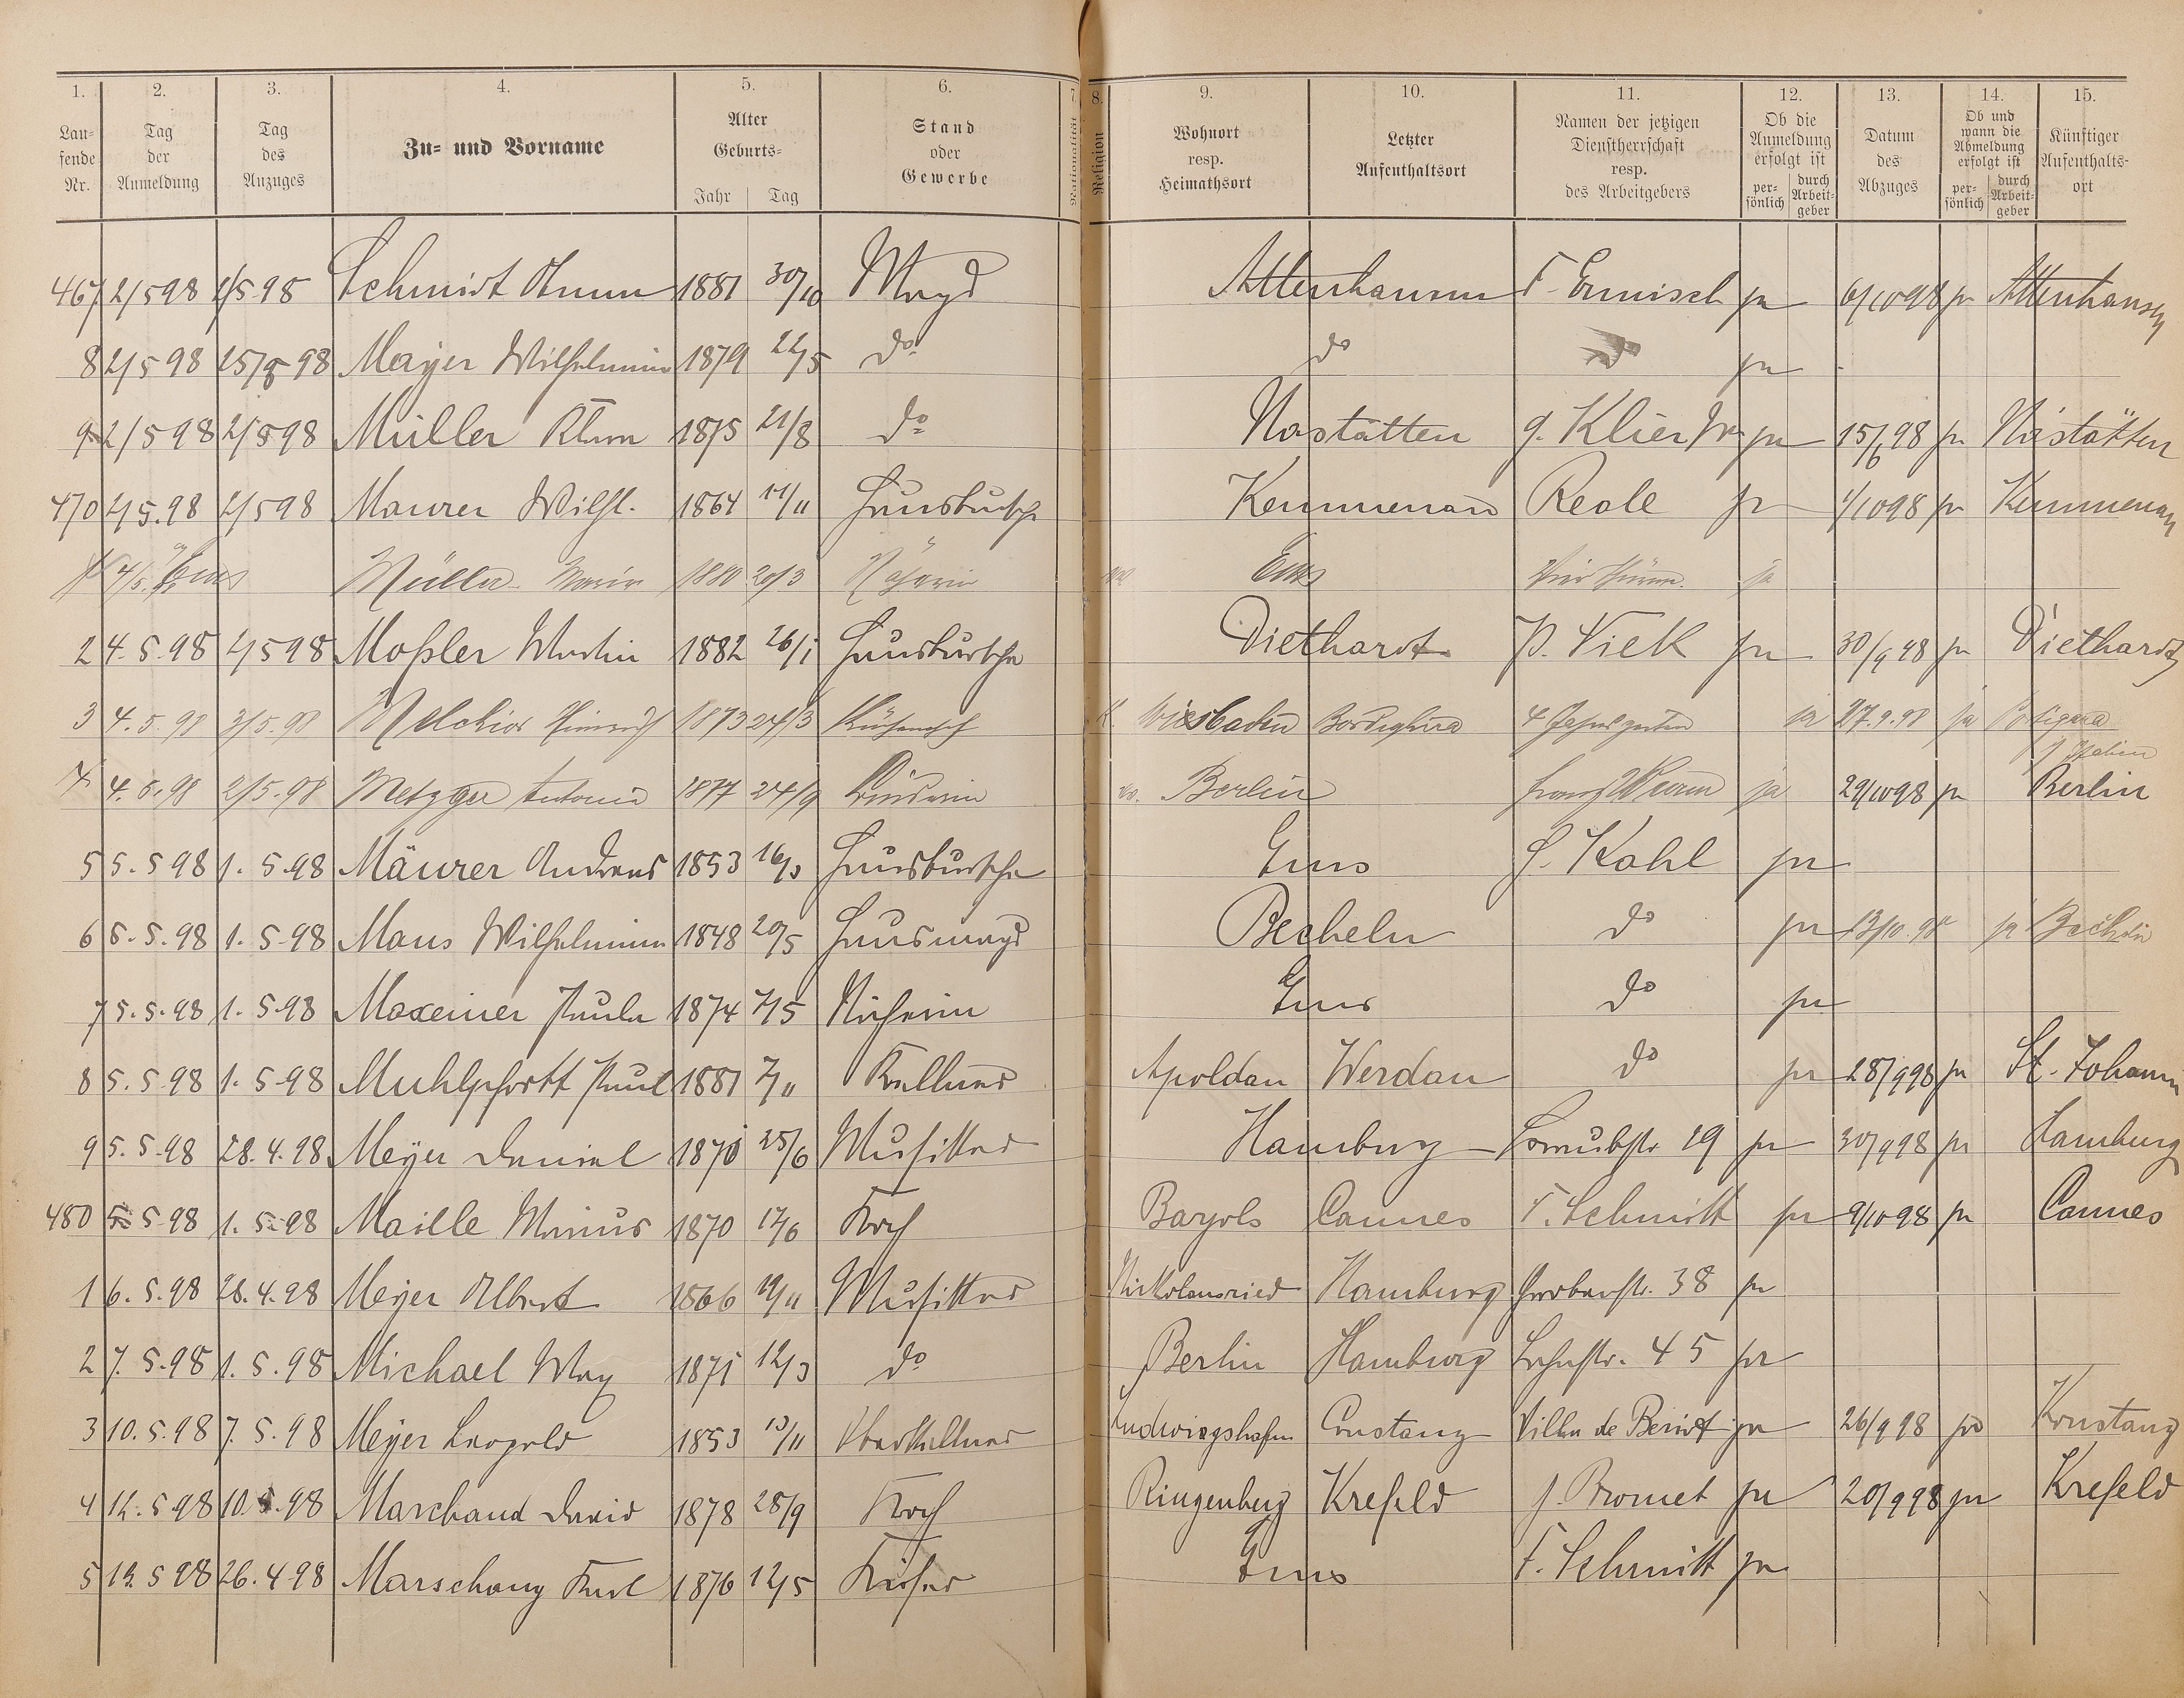 1. 2. 3. 4. 5. 6. 7. 8. 9. 10. 11. 12. 13. 14. 15.
Laufende Nr. Tag der Anmeldung Tag des Anzuges Zu= und Vorname Alter Geburts= Jahr Tag Stand oder Gewerbe Nationalität Religion Wohnort resp. Heimathsort Letzter Aufenthaltsort Namen der jetzigen Dienstherrschaft resp. des Arbeitgebers Ob die Anmeldung erfolgt ist persönlich durch Arbeitgeber Datum des Abzuges Ob und wann die Abmeldung erfolgt ist persönlich durch Arbeitgeber Künftiger Aufenthaltsort
467 2/5 98 2/5 98 Schmidt Anna 1881 30/10 Magd Attenhausen F. Ermisch ja 6/10 98 ja Attenhausen
8 2/5 98 Mayer Wilhelmine 1879 22/5 do do do ja
9 2/5 98 2/5 98 Müller 1875 21/8 do Nastätten G. Klier ja 15/6 98 ja Nastätten
470 2/5.98 2/5 98 Maurer Wilh. 1864 11/11 Hausbursche Kemmenau Reale ja 1/10 98 ja Kemmenau
4/5. Müller Maria 1880 20/3 Näherin Ems Vier Türme. ja
2 4.5.98 2/5 98 Moßler Martin 1882 26/1 Hausbursche Diethardt P. Viek ja 30/9 98 ja Diethardt
3 4.5.98 3/5.98 Melchior Heinrich 1873 24/3 Küchenchef K. Wiesbaden Bordighera 4 Jahreszeiten ja 27.9.98 ja Italien
4 4.5.98 2/5.98 Metzger Antonie 24/9 Berlin ja 29/10 98 ja Berlin
5 5.5 98 1.5.98 Mäurer Andreas 1853 16/3 Hausbursche Ems H. Kahl ja
6 5.5.98 1.5.98 Maus Wilhelmine 1848 20/5 Hausmagd Becheln do ja 13/10.98 ja Becheln
7 5.5.98 1.5.98 Maxeiner Paula 1874 7/5 Näherin Ems do ja
8 5.5.98 1.5.98 Muhlpfortt Paul 1881 7/11 Kellner Apoldau Werdau do ja 28/9 98 ja St. Johann
9 5.5.98 28.4.98 Meyer Daniel 25/6 Musiker Hamburg 19 ja 30/9 98 ja Hamburg
480 5.5.98 1.5.98 Maille Marius 1870 17/6 Koch Barjols Cannes F. Schmitt ja 9/10 98 ja Cannes
1 6.5.98 28.4.98 Meyer Albert 1866 19/11 Musiker Hamburg Grabenstr. 38 ja
2 7.5.98 1.5.98 Michael Max 1871 12/3 do Berlin Hamburg Lahnstr. 45 ja
3 10.5.98 7.5.98 Meyer Leopold 1853 13/11 Oberkellner Ludwigshafen Constanz Villa de Beriot ja 26/9 98 ja Konstanz
4 12.5 98 10.5.98 Marchand David 1878 28/9 Koch Ringenberg Krefeld J. Bromet ja 20/9 98 ja Krefeld
5 12.5 98 26.4 98 Marschang Karl 1876 12/5 Küfer Ems F. Schmitt ja